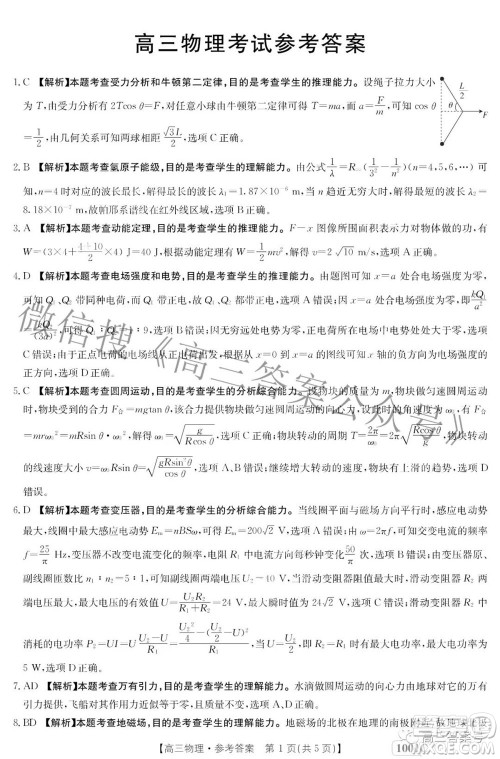 高三物理考试参考答案
1. C 【解析】本题考查受力分析和牛顿第二定律,目的是考查学生的推理能力。设绳子拉力大小
为 T,由力的分解有 2Tcos θ=F,对任意小球由牛顿第二定律可得 T=ma,而 a=F/m,可知 cos θ
=1/2,由几何关系可知两球相距 √3L/2,选项 C 正确。
2. B 【解析】本题考查氢原子能级,目的是考查学生的理解能力。由公式 1/λ=R∞(1/3²−1/n²)(n=4,5,6,…)可
知,n=4 时对应的波长最长,解得最长的波长 λ₁=1.87×10⁻⁶ m,当 n 趋近无穷大时,λ₂=
8.18×10⁻⁷ m,故帕邢系谱线在红外线区域,选项 B 正确。
3. A 【解析】本题考查动能定理,目的是考查学生的推理能力。F−x 图像所围面积表示力对物体做的功,有
W=(3×4+(4+10)/2×4) J=40 J,根据动能定理有 W=1/2mv²,解得 v=2√10 m/s,选项 A 正确。
4. D 【解析】本题考查电场强度和电势,目的是考查学生的理解能力。由题图可知 x=a 处合电场强度为零,
可知 Q₁、Q₂ 带同种电荷,而 Q₁ 带正电,故 Q₁、Q₂ 都带正电,选项 A 错误;因 x=a 处合电场强度为零,即 kQ₁/a²
kQ₂/(3a)²,可得 Q₁ Q₂ 1:9,选项 B 错误;因无穷远处电势为零,且两电荷均带正电,故 x=a 处电势大于零,选项
C 错误;由于正点电荷的电场线从正电荷出发,根据从 x=0 到 x=a 的图线可知 x=a 右侧附近电场强度的
正方向,选项 D 正确。
5. C 【解析】本题考查圆周运动,目的是考查学生的分析综合能力。设物块的质量为 m,物块做匀速圆周运动
时,物块受到的合力 F合=mgtan θ,该合力提供物块做匀速圆周运动的向心力,设此时的角速度为 ω₀,有 F合
=mrω₀²=mRsin θ·ω₀²,解得 ω₀=√(g/(Rcos θ)),选项 C 正确;物块转动的周期 T=2π/ω₀=2π√(Rcos θ/g),物块转动
的线速度大小 v=ω₀Rsin θ=√(gRsin²θ/cos θ),选项 A、B 错误;继续增大转台的转速,物块向上运动,选项 D
错误。
6. D 【解析】本题考查变压器,目的是考查学生的分析综合能力。当线圈平面与磁场方向平行时,感应电动势
最大,线圈中感应电动势最大值 Em=nBSω,可得 Em=200√2 V,选项 A 错误;由 ω=2πf,可知交变电流的频率
f=25/π Hz,变压器不改变电流变化频率,电阻 R₁ 中电流方向每秒钟变化 50/π 次,选项 B 错误;由变压器原、
副线圈匝数比 n₁∶n₂=5∶1,可知副线圈两端电压 U₂=40 V,当滑动变阻器阻值最大时,滑动变阻器 R₂ 两
端电压最大,最大有效值 U=U₂R₂/(R₁+R₂)=24 V,最大值为 24√2 V,选项 C 错误;滑动变阻器滑动过程中,R₂
消耗的电功率 P₂=UI=U(U₂−U)/R₁=(U₂²/4−(U₂/2−U)²)/R₁,当 U=U₂/2,即 R₂=R₁ 时,电功率最大,最大电功率为
5 W,选项 D 正确。
7. AD 【解析】本题考查万有引力,目的是考查学生的理解能力。水滴做圆周运动的向心力由地球对它的万有
引力提供,
8. BD 【解析】本题考查地磁场,目的是考查学生的理解能力。地磁场的北极在地理的南极附近,
【高三物理·参考答案 第 1 页(共 5 页)】
微信搜《高三答案公众号》